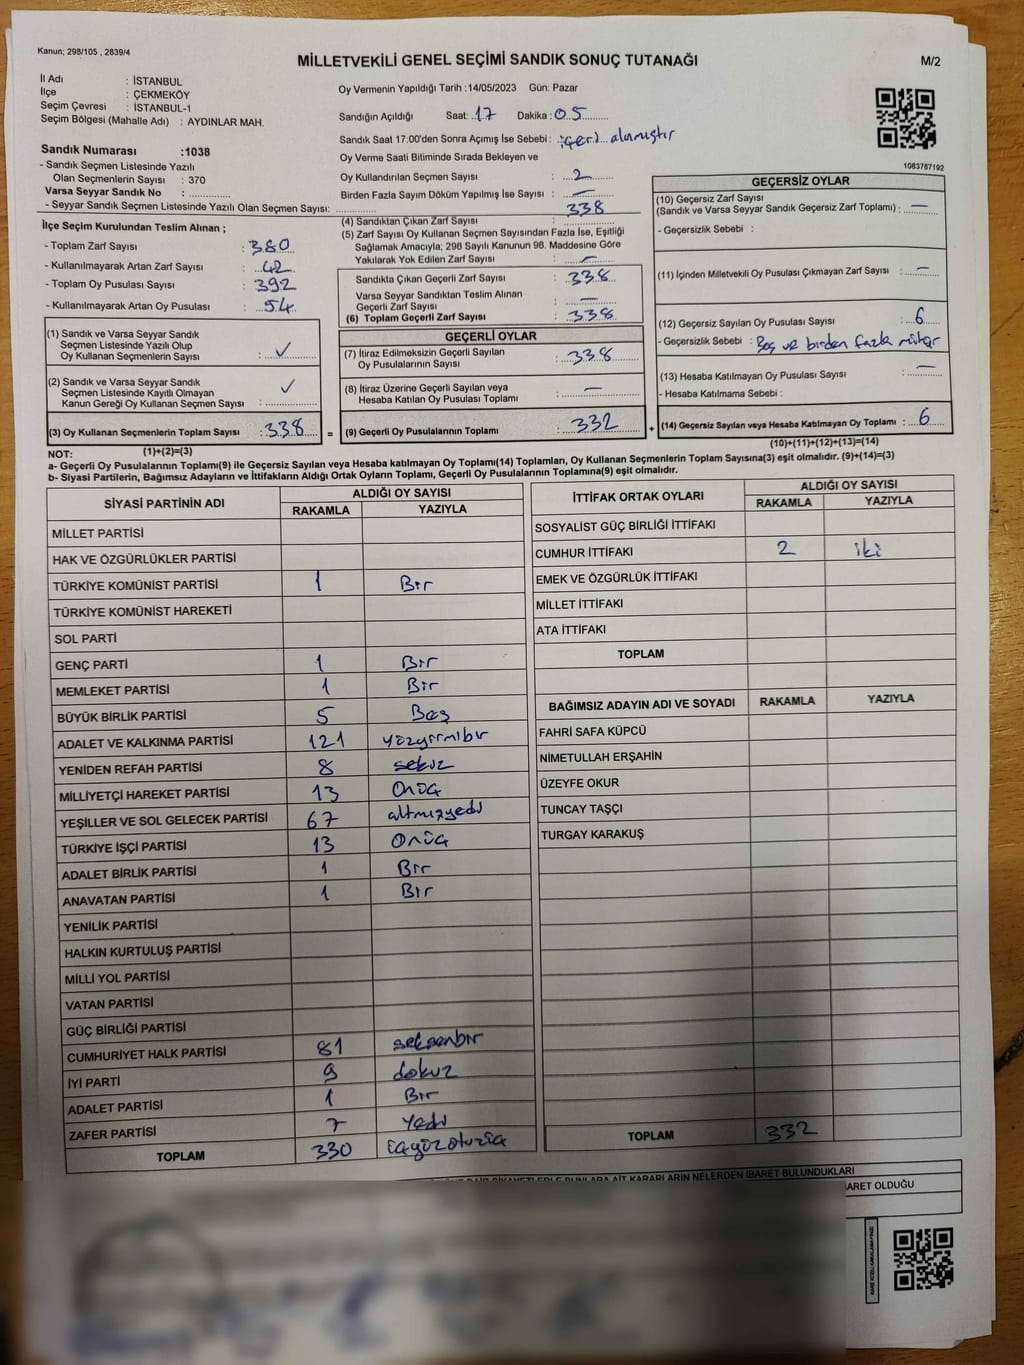 Kanun; 298/105 , 2839/4
MİLLETVEKİLİ GENEL SEÇİMİ SANDIK SONUÇ TUTANAĞI
M/2
İl Adı : İSTANBUL
İlçe : ÇEKMEKÖY
Seçim Çevresi : İSTANBUL-1
Seçim Bölgesi (Mahalle Adı) : AYDINLAR MAH.
Oy Vermenin Yapıldığı Tarih :14/05/2023 Gün: Pazar
Sandığın Açıldığı Saat: 17 Dakika: 05
Sandık Saat 17:00'den Sonra Açımış İse Sebebi : içeri alınmıştır
Oy Verme Saati Bitiminde Sırada Bekleyen ve
Oy Kullandırılan Seçmen Sayısı : 2
Birden Fazla Sayım Döküm Yapılmış İse Sayısı : —
1083787192
Sandık Numarası :1038
- Sandık Seçmen Listesinde Yazılı
Olan Seçmenlerin Sayısı : 370
Varsa Seyyar Sandık No :
- Seyyar Sandık Seçmen Listesinde Yazılı Olan Seçmen Sayısı:
İlçe Seçim Kurulundan Teslim Alınan ;
- Toplam Zarf Sayısı : 380
- Kullanılmayarak Artan Zarf Sayısı : 42
- Toplam Oy Pusulası Sayısı : 392
- Kullanılmayarak Artan Oy Pusulası : 54
(1) Sandık ve Varsa Seyyar Sandık
Seçmen Listesinde Yazılı Olup
Oy Kullanan Seçmenlerin Sayısı : ✓
(2) Sandık ve Varsa Seyyar Sandık
Seçmen Listesinde Kayıtlı Olmayan
Kanun Gereği Oy Kullanan Seçmen Sayısı : ✓
(3) Oy Kullanan Seçmenlerin Toplam Sayısı : 338
(1)+(2)=(3)
(4) Sandıktan Çıkan Zarf Sayısı : 338
(5) Zarf Sayısı Oy Kullanan Seçmen Sayısından Fazla İse, Eşitliği
Sağlamak Amacıyla; 298 Sayılı Kanunun 98. Maddesine Göre
Yakılarak Yok Edilen Zarf Sayısı : —
Sandıkta Çıkan Geçerli Zarf Sayısı : 338
Varsa Seyyar Sandıktan Teslim Alınan
Geçerli Zarf Sayısı : —
(6) Toplam Geçerli Zarf Sayısı : 338
GEÇERLİ OYLAR
(7) İtiraz Edilmeksizin Geçerli Sayılan
Oy Pusulalarının Sayısı : 338
(8) İtiraz Üzerine Geçerli Sayılan veya
Hesaba Katılan Oy Pusulası Toplamı : —
= (9) Geçerli Oy Pusulalarının Toplamı : 332
GEÇERSİZ OYLAR
(10) Geçersiz Zarf Sayısı
(Sandık ve Varsa Seyyar Sandık Geçersiz Zarf Toplamı) : —
- Geçersizlik Sebebi :
(11) İçinden Milletvekili Oy Pusulası Çıkmayan Zarf Sayısı : —
(12) Geçersiz Sayılan Oy Pusulası Sayısı : 6
- Geçersizlik Sebebi : Boş ve birden fazla mühür
(13) Hesaba Katılmayan Oy Pusulası Sayısı : —
- Hesaba Katılmama Sebebi :
+ (14) Geçersiz Sayılan veya Hesaba Katılmayan Oy Toplamı : 6
(10)+(11)+(12)+(13)=(14)
NOT:
a- Geçerli Oy Pusulalarının Toplamı(9) ile Geçersiz Sayılan veya Hesaba katılmayan Oy Toplamı(14) Toplamları, Oy Kullanan Seçmenlerin Toplam Sayısına(3) eşit olmalıdır. (9)+(14)=(3)
b- Siyasi Partilerin, Bağımsız Adayların ve İttifakların Aldığı Ortak Oyların Toplamı, Geçerli Oy Pusulalarının Toplamına(9) eşit olmalıdır.
SİYASİ PARTİNİN ADI ALDIĞI OY SAYISI
RAKAMLA YAZIYLA
MİLLET PARTİSİ
HAK VE ÖZGÜRLÜKLER PARTİSİ
TÜRKİYE KOMÜNİST PARTİSİ 1 Bir
TÜRKİYE KOMÜNİST HAREKETİ
SOL PARTİ
GENÇ PARTİ 1 Bir
MEMLEKET PARTİSİ 1 Bir
BÜYÜK BİRLİK PARTİSİ 5 Beş
ADALET VE KALKINMA PARTİSİ 121 yüzyirmibir
YENİDEN REFAH PARTİSİ 8 sekiz
MİLLİYETÇİ HAREKET PARTİSİ 13 Onüç
YEŞİLLER VE SOL GELECEK PARTİSİ 67 altmışyedi
TÜRKİYE İŞÇİ PARTİSİ 13 Onüç
ADALET BİRLİK PARTİSİ 1 Bir
ANAVATAN PARTİSİ 1 Bir
YENİLİK PARTİSİ
HALKIN KURTULUŞ PARTİSİ
MİLLİ YOL PARTİSİ
VATAN PARTİSİ
GÜÇ BİRLİĞİ PARTİSİ
CUMHURİYET HALK PARTİSİ 81 seksenbir
İYİ PARTİ 9 dokuz
ADALET PARTİSİ 1 Bir
ZAFER PARTİSİ 7 Yedi
TOPLAM 330 üçyüzotuz
İTTİFAK ORTAK OYLARI ALDIĞI OY SAYISI
RAKAMLA YAZIYLA
SOSYALİST GÜÇ BİRLİĞİ İTTİFAKI
CUMHUR İTTİFAKI 2 iki
EMEK VE ÖZGÜRLÜK İTTİFAKI
MİLLET İTTİFAKI
ATA İTTİFAKI
TOPLAM
BAĞIMSIZ ADAYIN ADI VE SOYADI RAKAMLA YAZIYLA
FAHRİ SAFA KÜPCÜ
NİMETULLAH ERŞAHİN
ÜZEYFE OKUR
TUNCAY TAŞÇI
TURGAY KARAKUŞ
TOPLAM 332
DAİR ŞİKAYETLERLE BUNLARA AİT KARARLARIN NELERDEN İBARET BULUNDUKLARI
BARET OLDUĞU